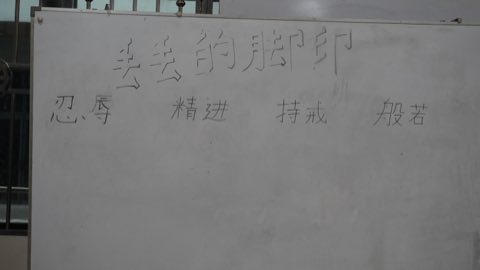 丢丢的脚印
忍辱 精进 持戒 般若